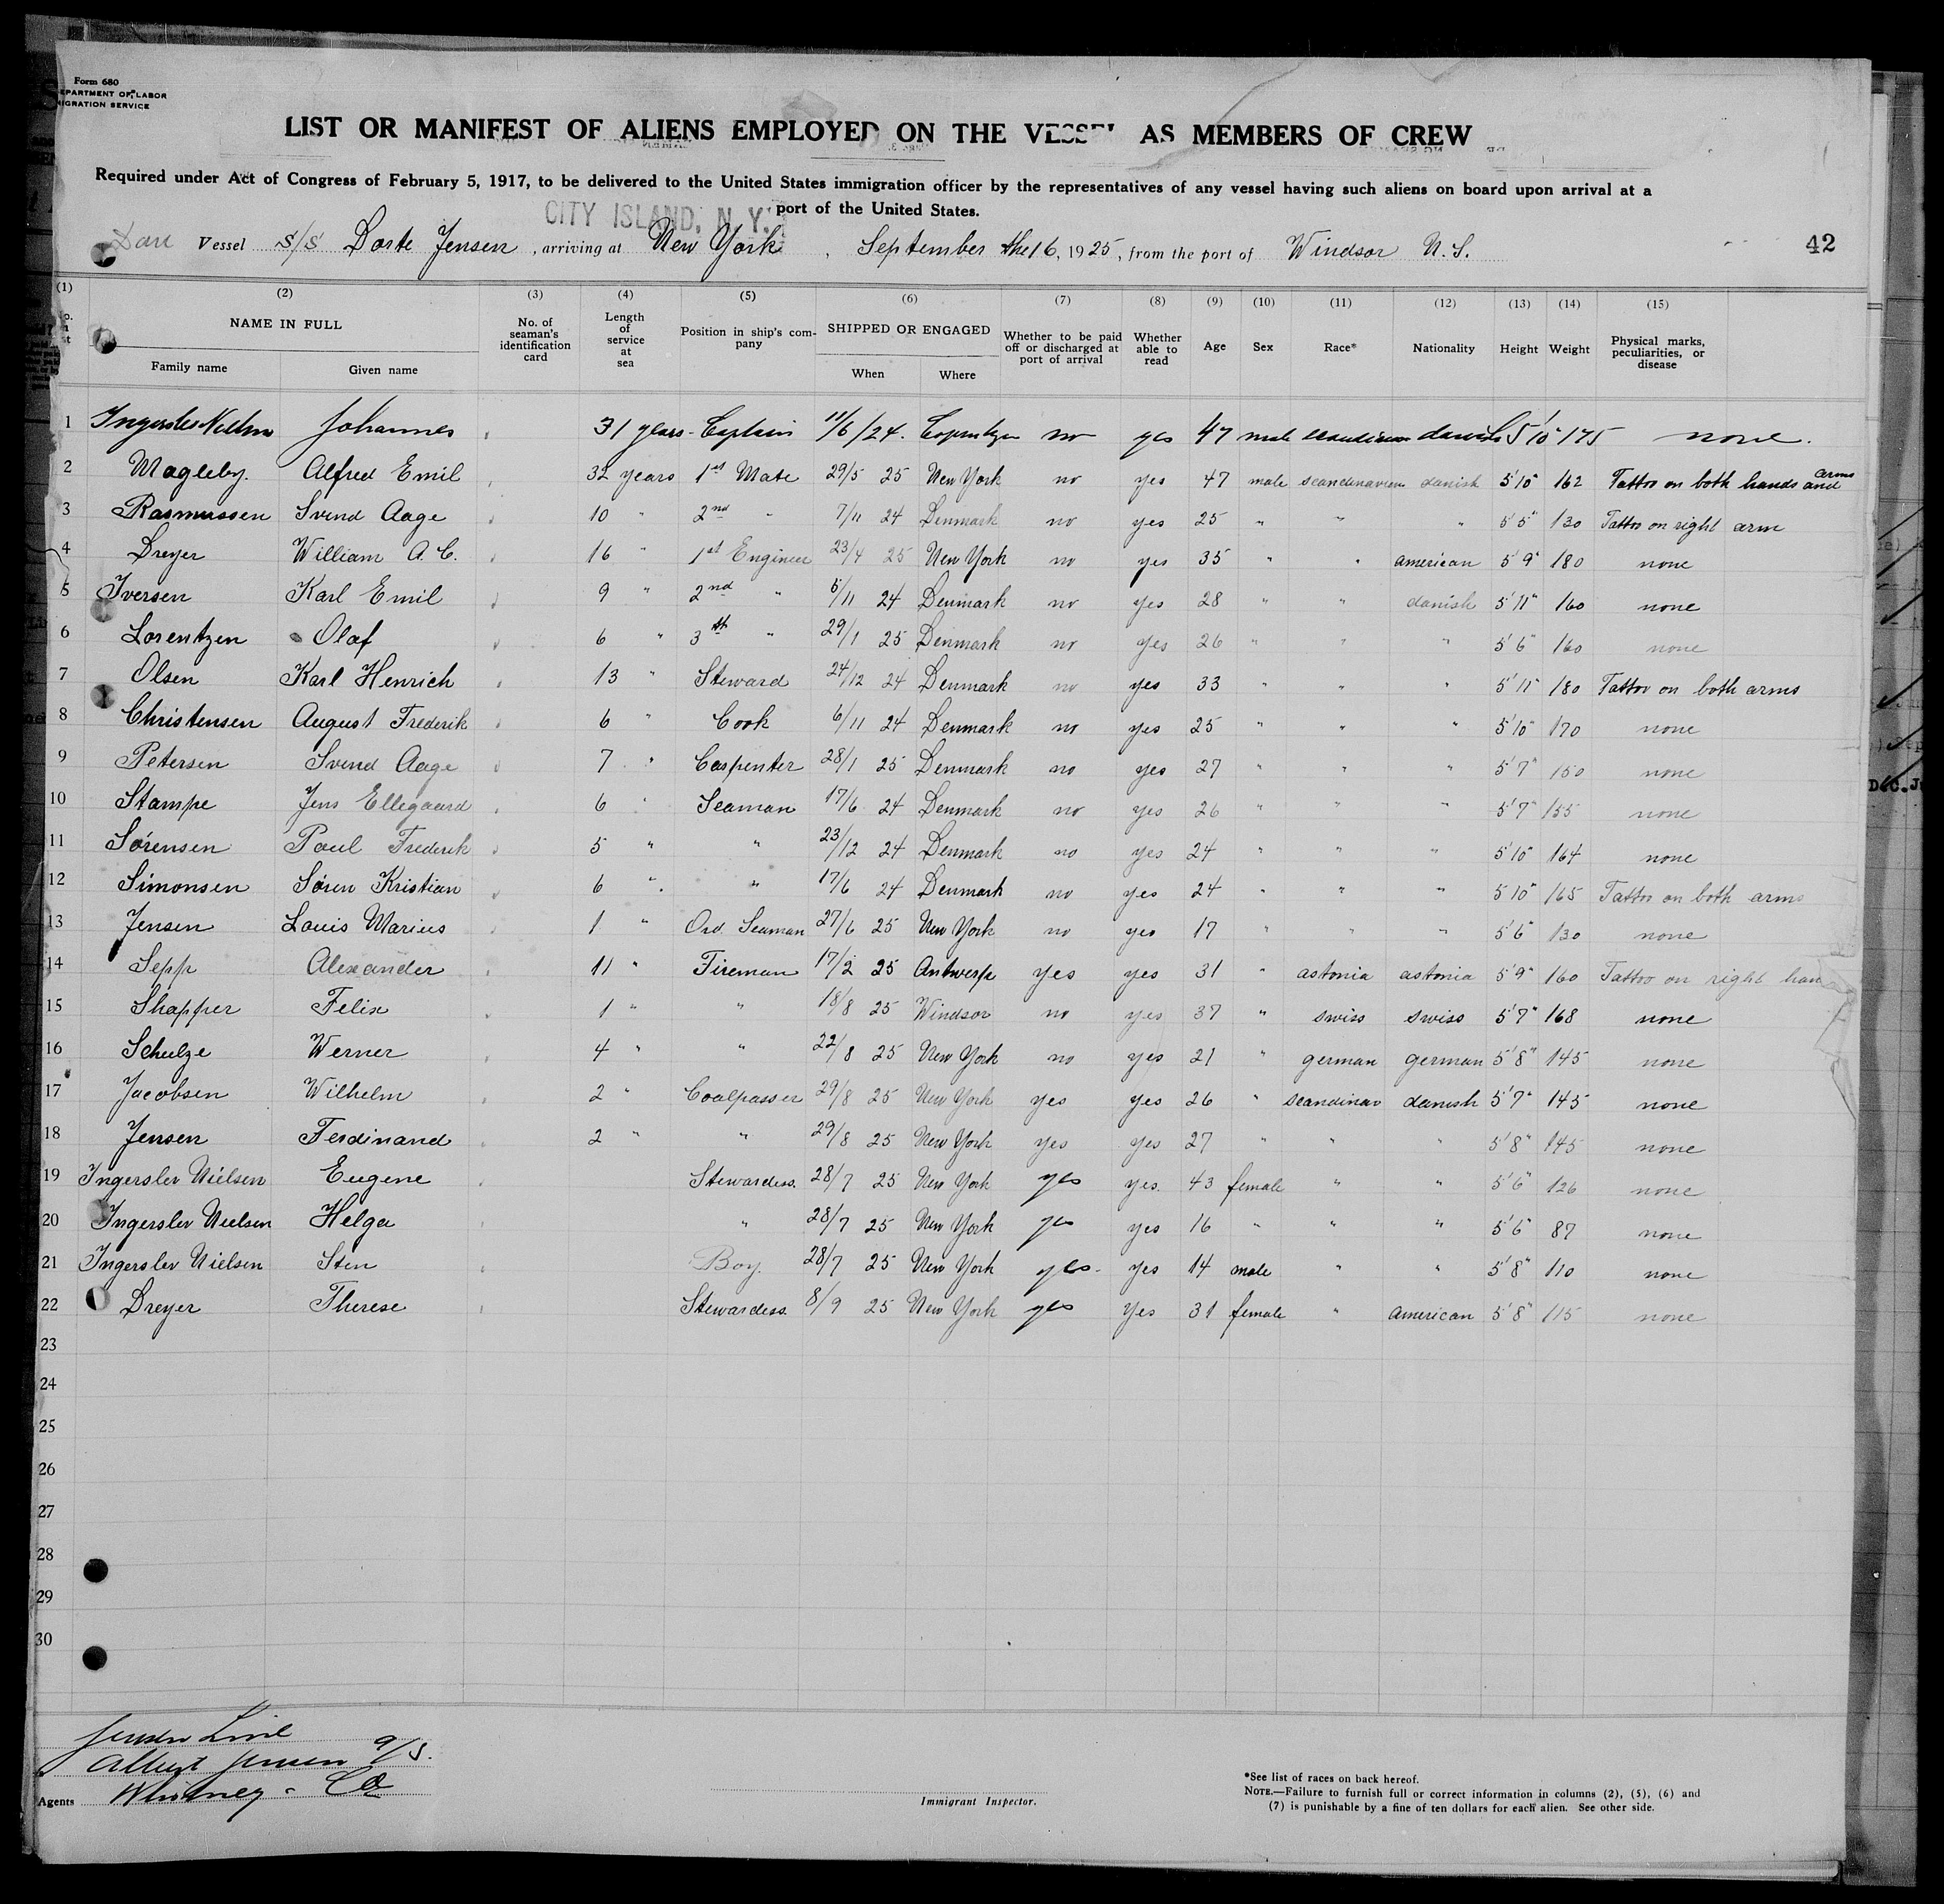 Form 680
EPARTMENT OF LABOR
MIGRATION SERVICE
LIST OR MANIFEST OF ALIENS EMPLOYED ON THE VESSEL AS MEMBERS OF CREW
Required under Act of Congress of February 5, 1917, to be delivered to the United States immigration officer by the representatives of any vessel having such aliens on board upon arrival at a
port of the United States.
CITY ISLAND, N. Y.
Dan Vessel S/S Dorte Jensen, arriving at New York, September the 16, 1925, from the port of Windsor N.S. 42
(1) (2) (3) (4) (5) (6) (7) (8) (9) (10) (11) (12) (13) (14) (15)
NAME IN FULL No. of seaman's identification card Length of service at sea Position in ship's company SHIPPED OR ENGAGED Whether to be paid off or discharged at port of arrival Whether able to read Age Sex Race* Nationality Height Weight Physical marks, peculiarities, or disease
Family name Given name When Where
1 Ingerslev Nielsen Johannes 31 years Captain 11/6/24. Copenhagen no yes 47 male scandinavian danish 5'10" 175 none.
2 Magleby. Alfred Emil 32 years 1st Mate 29/5 25 New York no yes 47 male scandinavien danish 5'10" 162 Tattoo on both hands and arms
3 Rasmussen Svend Aage 10 " 2nd " 7/11 24 Denmark no yes 25 " " " 5'5" 130 Tattoo on right arm
4 Dreyer William A.C. 16 " 1st Engineer 23/4 25 New York no yes 35 " " american 5'9" 180 none
5 Iversen Karl Emil 9 " 2nd " 5/11 24 Denmark no yes 28 " " danish 5'11" 160 none
6 Lorentzen Olaf 6 " 3th " 29/1 25 Denmark no yes 26 " " " 5'6" 160 none
7 Olsen Karl Henrich 13 " Steward 24/12 24 Denmark no yes 33 " " " 5'11" 180 Tattoo on both arms
8 Christensen August Frederik 6 " Cook 6/11 24 Denmark no yes 25 " " " 5'10" 170 none
9 Petersen Svend Aage 7 " Carpenter 28/1 25 Denmark no yes 27 " " " 5'7" 150 none
10 Stampe Jens Ellegaard 6 " Seaman 17/6 24 Denmark no yes 26 " " " 5'7" 155 none
11 Sørensen Poul Frederik 5 " " 23/12 24 Denmark no yes 24 " " " 5'10" 164 none
12 Simonsen Søren Kristian 6 " " 17/6 24 Denmark no yes 24 " " " 5 10" 165 Tattoo on both arms
13 Jensen Louis Marius 1 " Ord. Seaman 27/6 25 New York no yes 17 " " " 5'6" 130 none
14 Sepp Alexander 11 " Fireman 17/2 25 Antwerp yes yes 31 " astonia astonia 5'9" 160 Tattoo on right han
15 Shapper Felix 1 " " 18/8 25 Windsor no yes 37 " swiss swiss 5'7" 168 none
16 Schulze Werner 4 " " 22/8 25 New York no yes 21 " german german 5'8" 145 none
17 Jacobsen Wilhelm 2 " Coalpasser 29/8 25 New York yes yes 26 " scandinav danish 5'7" 145 none
18 Jensen Ferdinand 2 " " 29/8 25 New York yes yes 27 " " " 5'8" 145 none
19 Ingerslev Nielsen Eugene Stewardess. 28/7 25 New York yes yes. 43 female " " 5'6" 126 none
20 Ingerslev Nielsen Helga " 28/7 25 New York yes yes 16 " " " 5'6" 87 none
21 Ingerslev Nielsen Sten Boy. 28/7 25 New York yes yes 14 male " " 5'8" 110 none
22 Dreyer Therese Stewardess. 8/9 25 New York yes Yes 31 female " american 5'8" 115 none
23
24
25
26
27
28
29
30
Jensen Line
Albert Jensen
Agents Whitney - Co
Immigrant Inspector.
*See list of races on back hereof.
NOTE.—Failure to furnish full or correct information in columns (2), (5), (6) and
(7) is punishable by a fine of ten dollars for each alien. See other side.